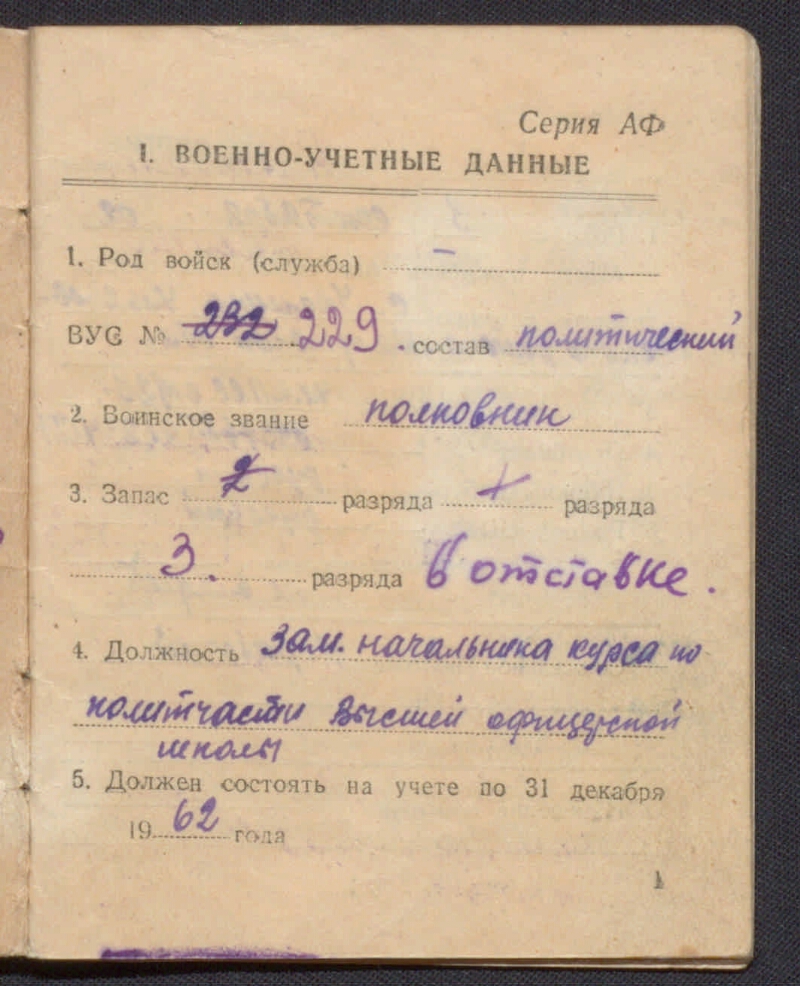 Серия АФ
I. ВОЕННО-УЧЕТНЫЕ ДАННЫЕ
1. Род войск (служба) –
ВУС № 232 229. состав политический
2. Воинское звание полковник
3. Запас 2 разряда 1 разряда
3. разряда в отставке.
4. Должность Зам. начальника курса по
политчасти Высшей офицерской
школы
5. Должен состоять на учете по 31 декабря
1962 года
1